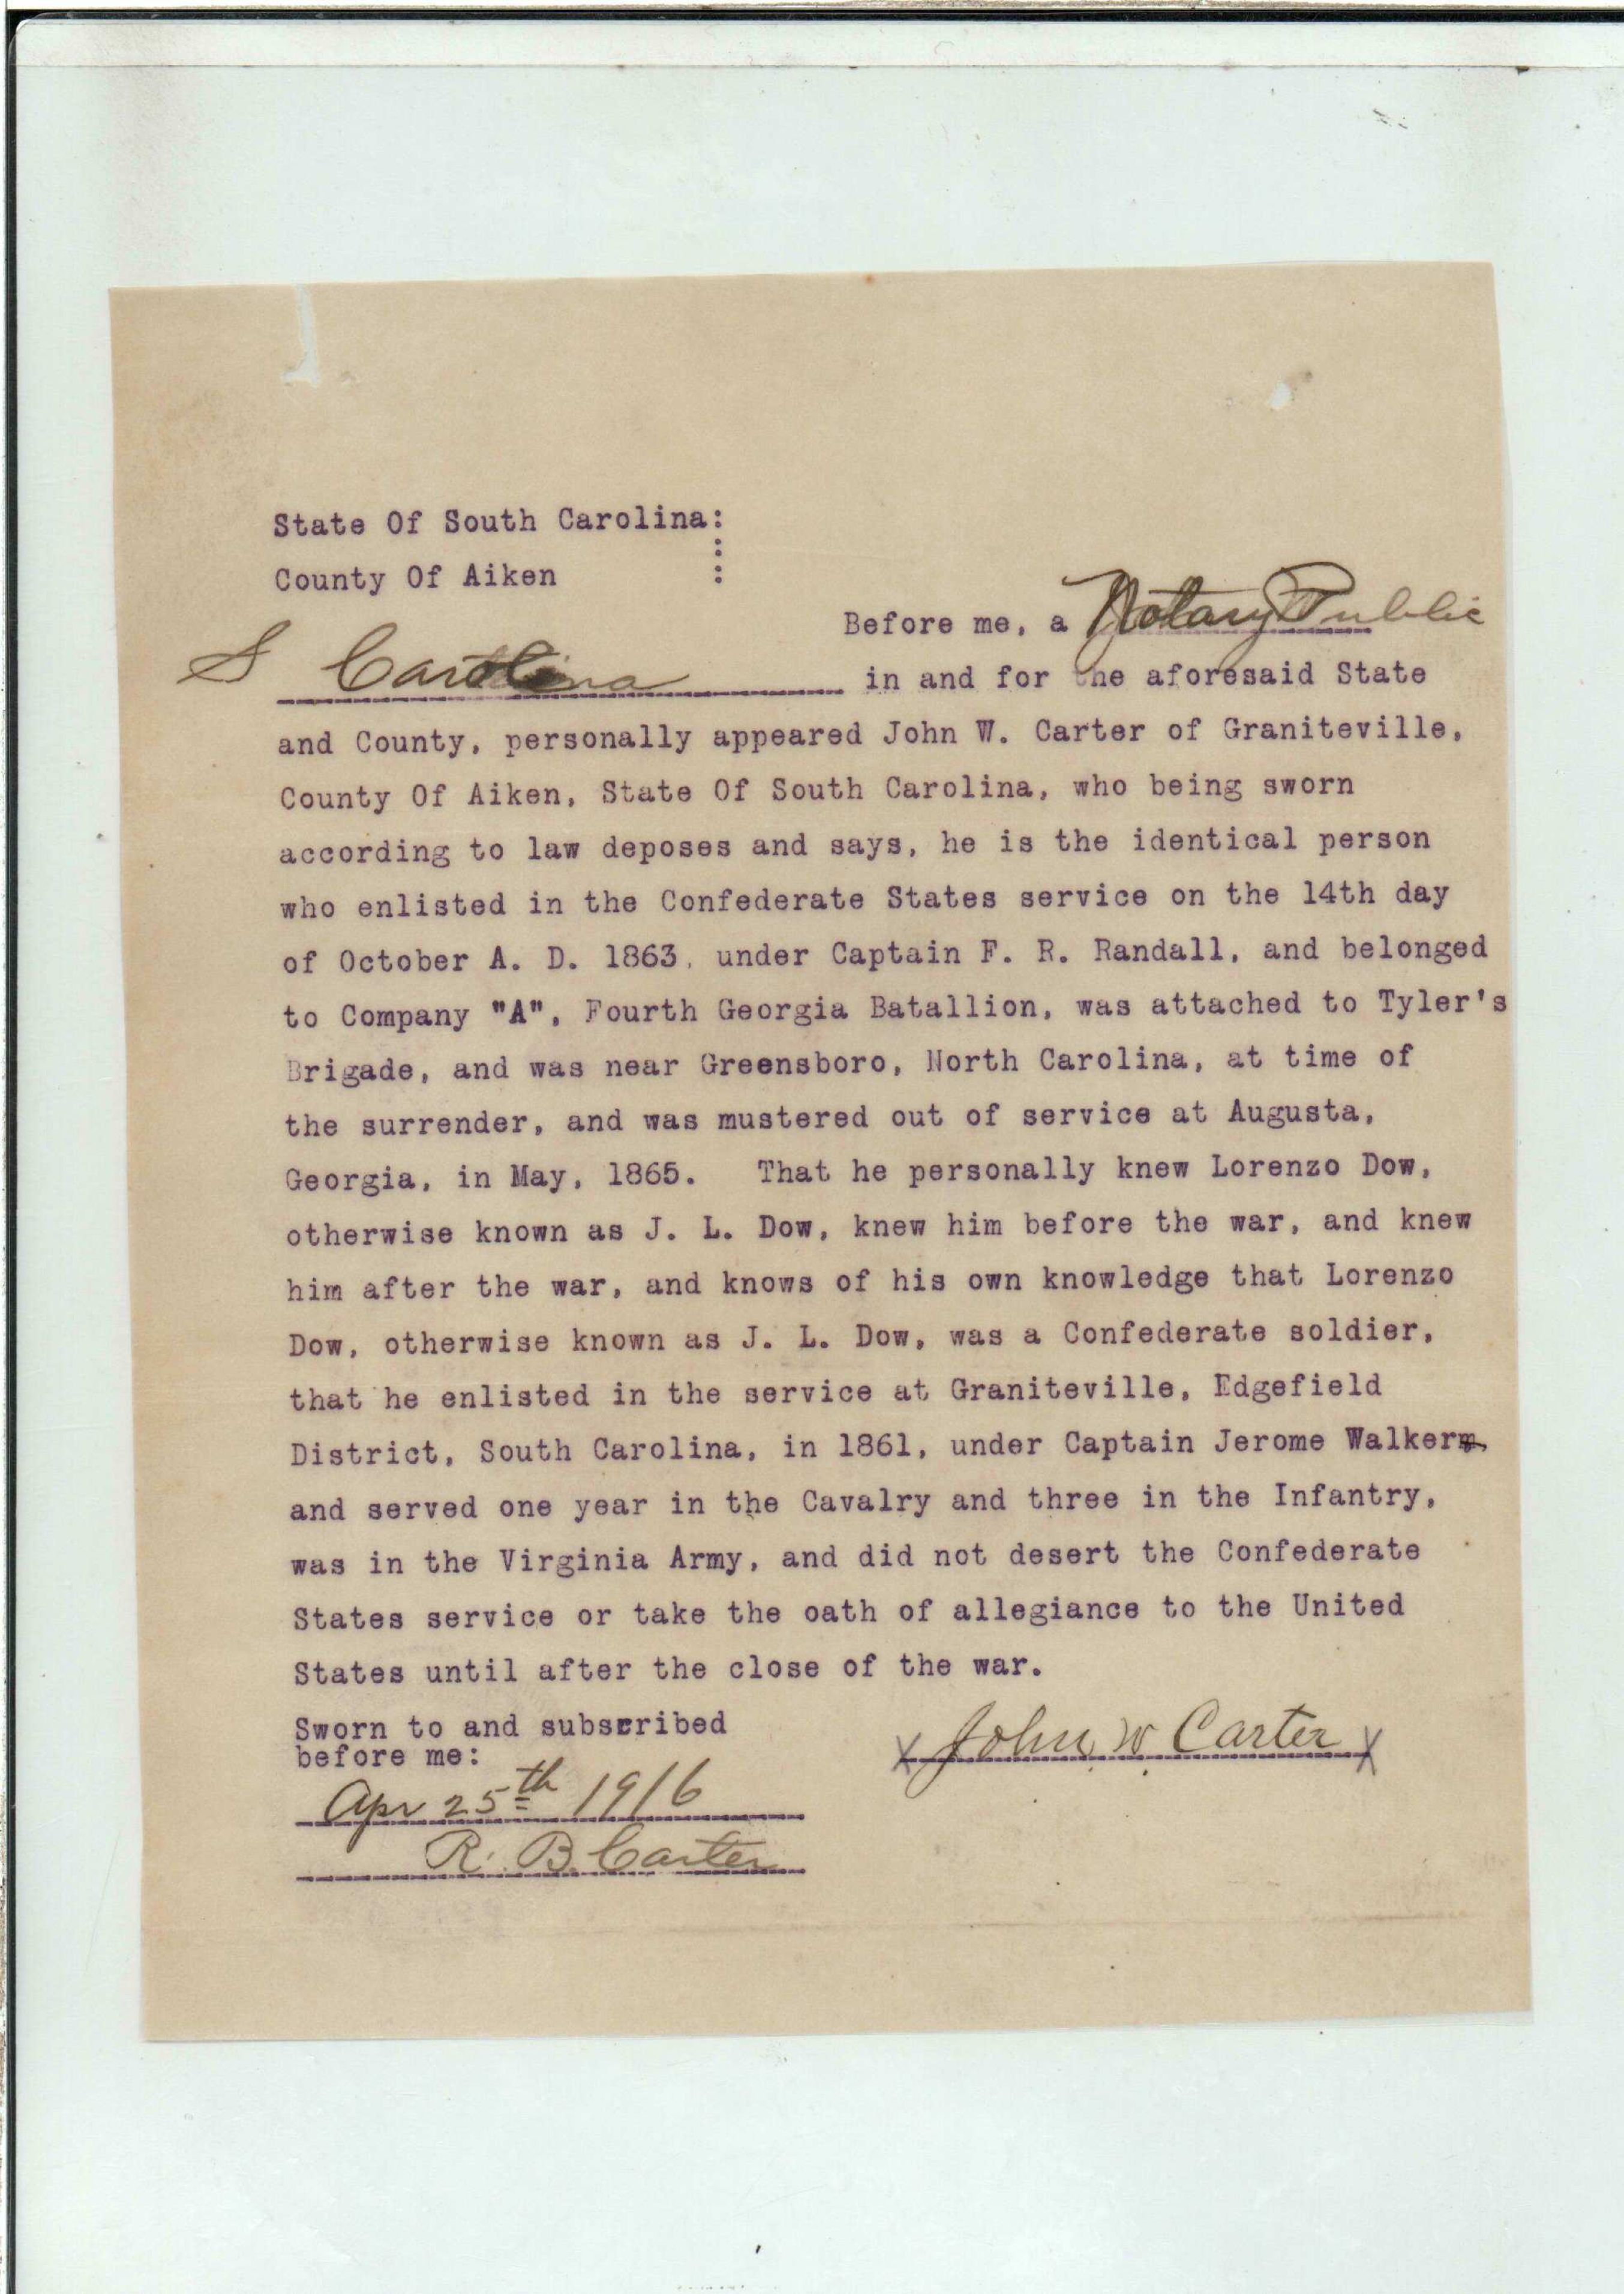 State Of South Carolina:
:
County Of Aiken :
Before me, a Notary Public
S Carolina in and for the aforesaid State
and County, personally appeared John W. Carter of Graniteville,
County Of Aiken, State Of South Carolina, who being sworn
according to law deposes and says, he is the identical person
who enlisted in the Confederate States service on the 14th day
of October A. D. 1863, under Captain F. R. Randall, and belonged
to Company "A", Fourth Georgia Batallion, was attached to Tyler's
Brigade, and was near Greensboro, North Carolina, at time of
the surrender, and was mustered out of service at Augusta,
Georgia, in May, 1865. That he personally knew Lorenzo Dow,
otherwise known as J. L. Dow, knew him before the war, and knew
him after the war, and knows of his own knowledge that Lorenzo
Dow, otherwise known as J. L. Dow, was a Confederate soldier,
that he enlisted in the service at Graniteville, Edgefield
District, South Carolina, in 1861, under Captain Jerome Walker,
and served one year in the Cavalry and three in the Infantry,
was in the Virginia Army, and did not desert the Confederate
States service or take the oath of allegiance to the United
States until after the close of the war.
Sworn to and subscribed
before me:
X John W Carter X
Apr 25th 1916
R. B. Carter